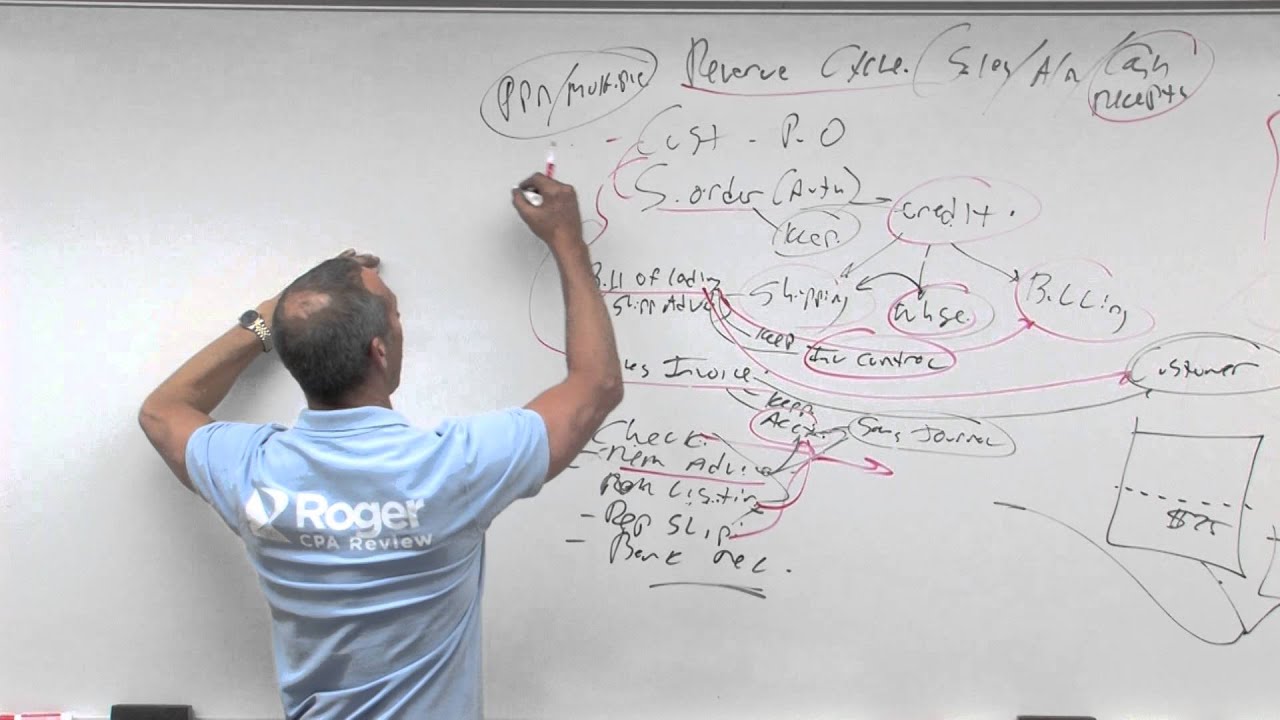 PPN/Multiple Revenue Cycle (Sales/A/R/Cash receipts
- Cust - P.O
S.order (Auth) credit.
keep
Bill of Lading Shipping Whse. Billing
keep Inv Control
Invoice. Customer
keep
Acctg Journal
Check.
Rem Advice
Rem Listing $75
- Dep Slip
- Bank rec.
Roger
CPA Review